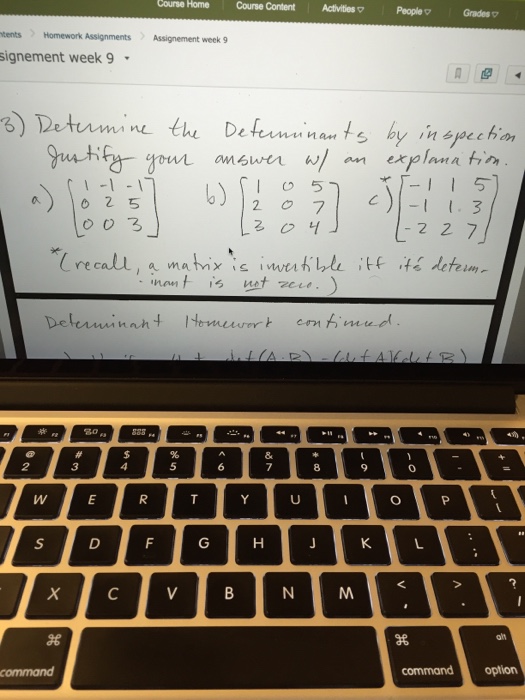 Course Home Course Content Activities People Grades
Homework Assignments > Assignement week 9
signement week 9
3) Determine the Determinants by inspection
Justify your answer w/ an explanation.
a) [1 -1 -1 b) [1 0 5 c)* [-1 1 5
0 2 5 2 0 7 -1 1. 3
0 0 3] 3 0 4] -2 2 7]
*(recall, a matrix is invertible iff it's determ-
inant is not zero.)
Determinant Homework continued.
@ # $ % ^ & * ( ) - +
2 3 4 5 6 7 8 9 0 =
W E R T Y U I O P { [
S D F G H J K L : ; "
X C V B N M < , > . ? /
⌘ ⌘ alt
command command option